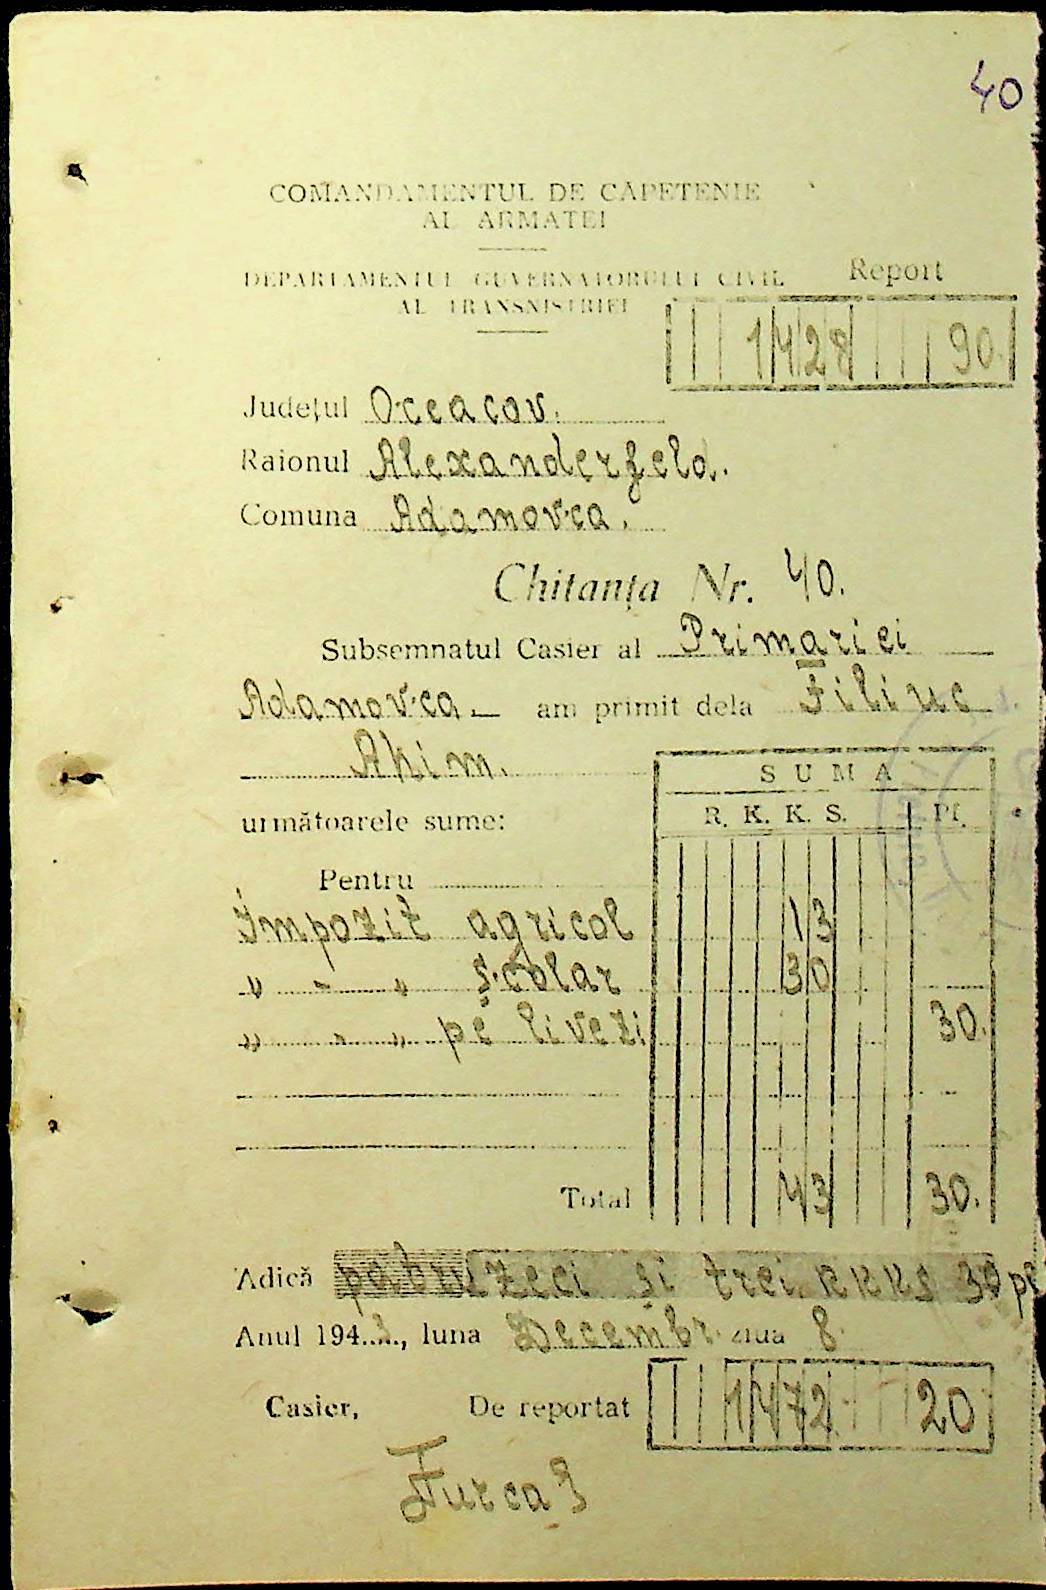 40
COMANDAMENTUL DE CAPETENIE
AL ARMATEI
DEPARTAMENTUL GUVERNATORULUI CIVIL
AL TRANSNISTRIEI
Report
1428 90
Județul Oceacov.
Raionul Alexanderfeld.
Comuna Adamovca.
Chitanța Nr. 40.
Subsemnatul Casier al Primariei
Adamovca am primit dela Filiuc
Ahim.
SUMA
următoarele sume: R. K. K. S. Pf.
Pentru
Impozit agricol 13
" - " școlar 30
" - " pe livezi 30.
Total 43 30.
Adică patruzeci și trei rkks 30 pf
Anul 194, luna Decembr. ziua 8
Casier, De reportat 1472 20
Furca